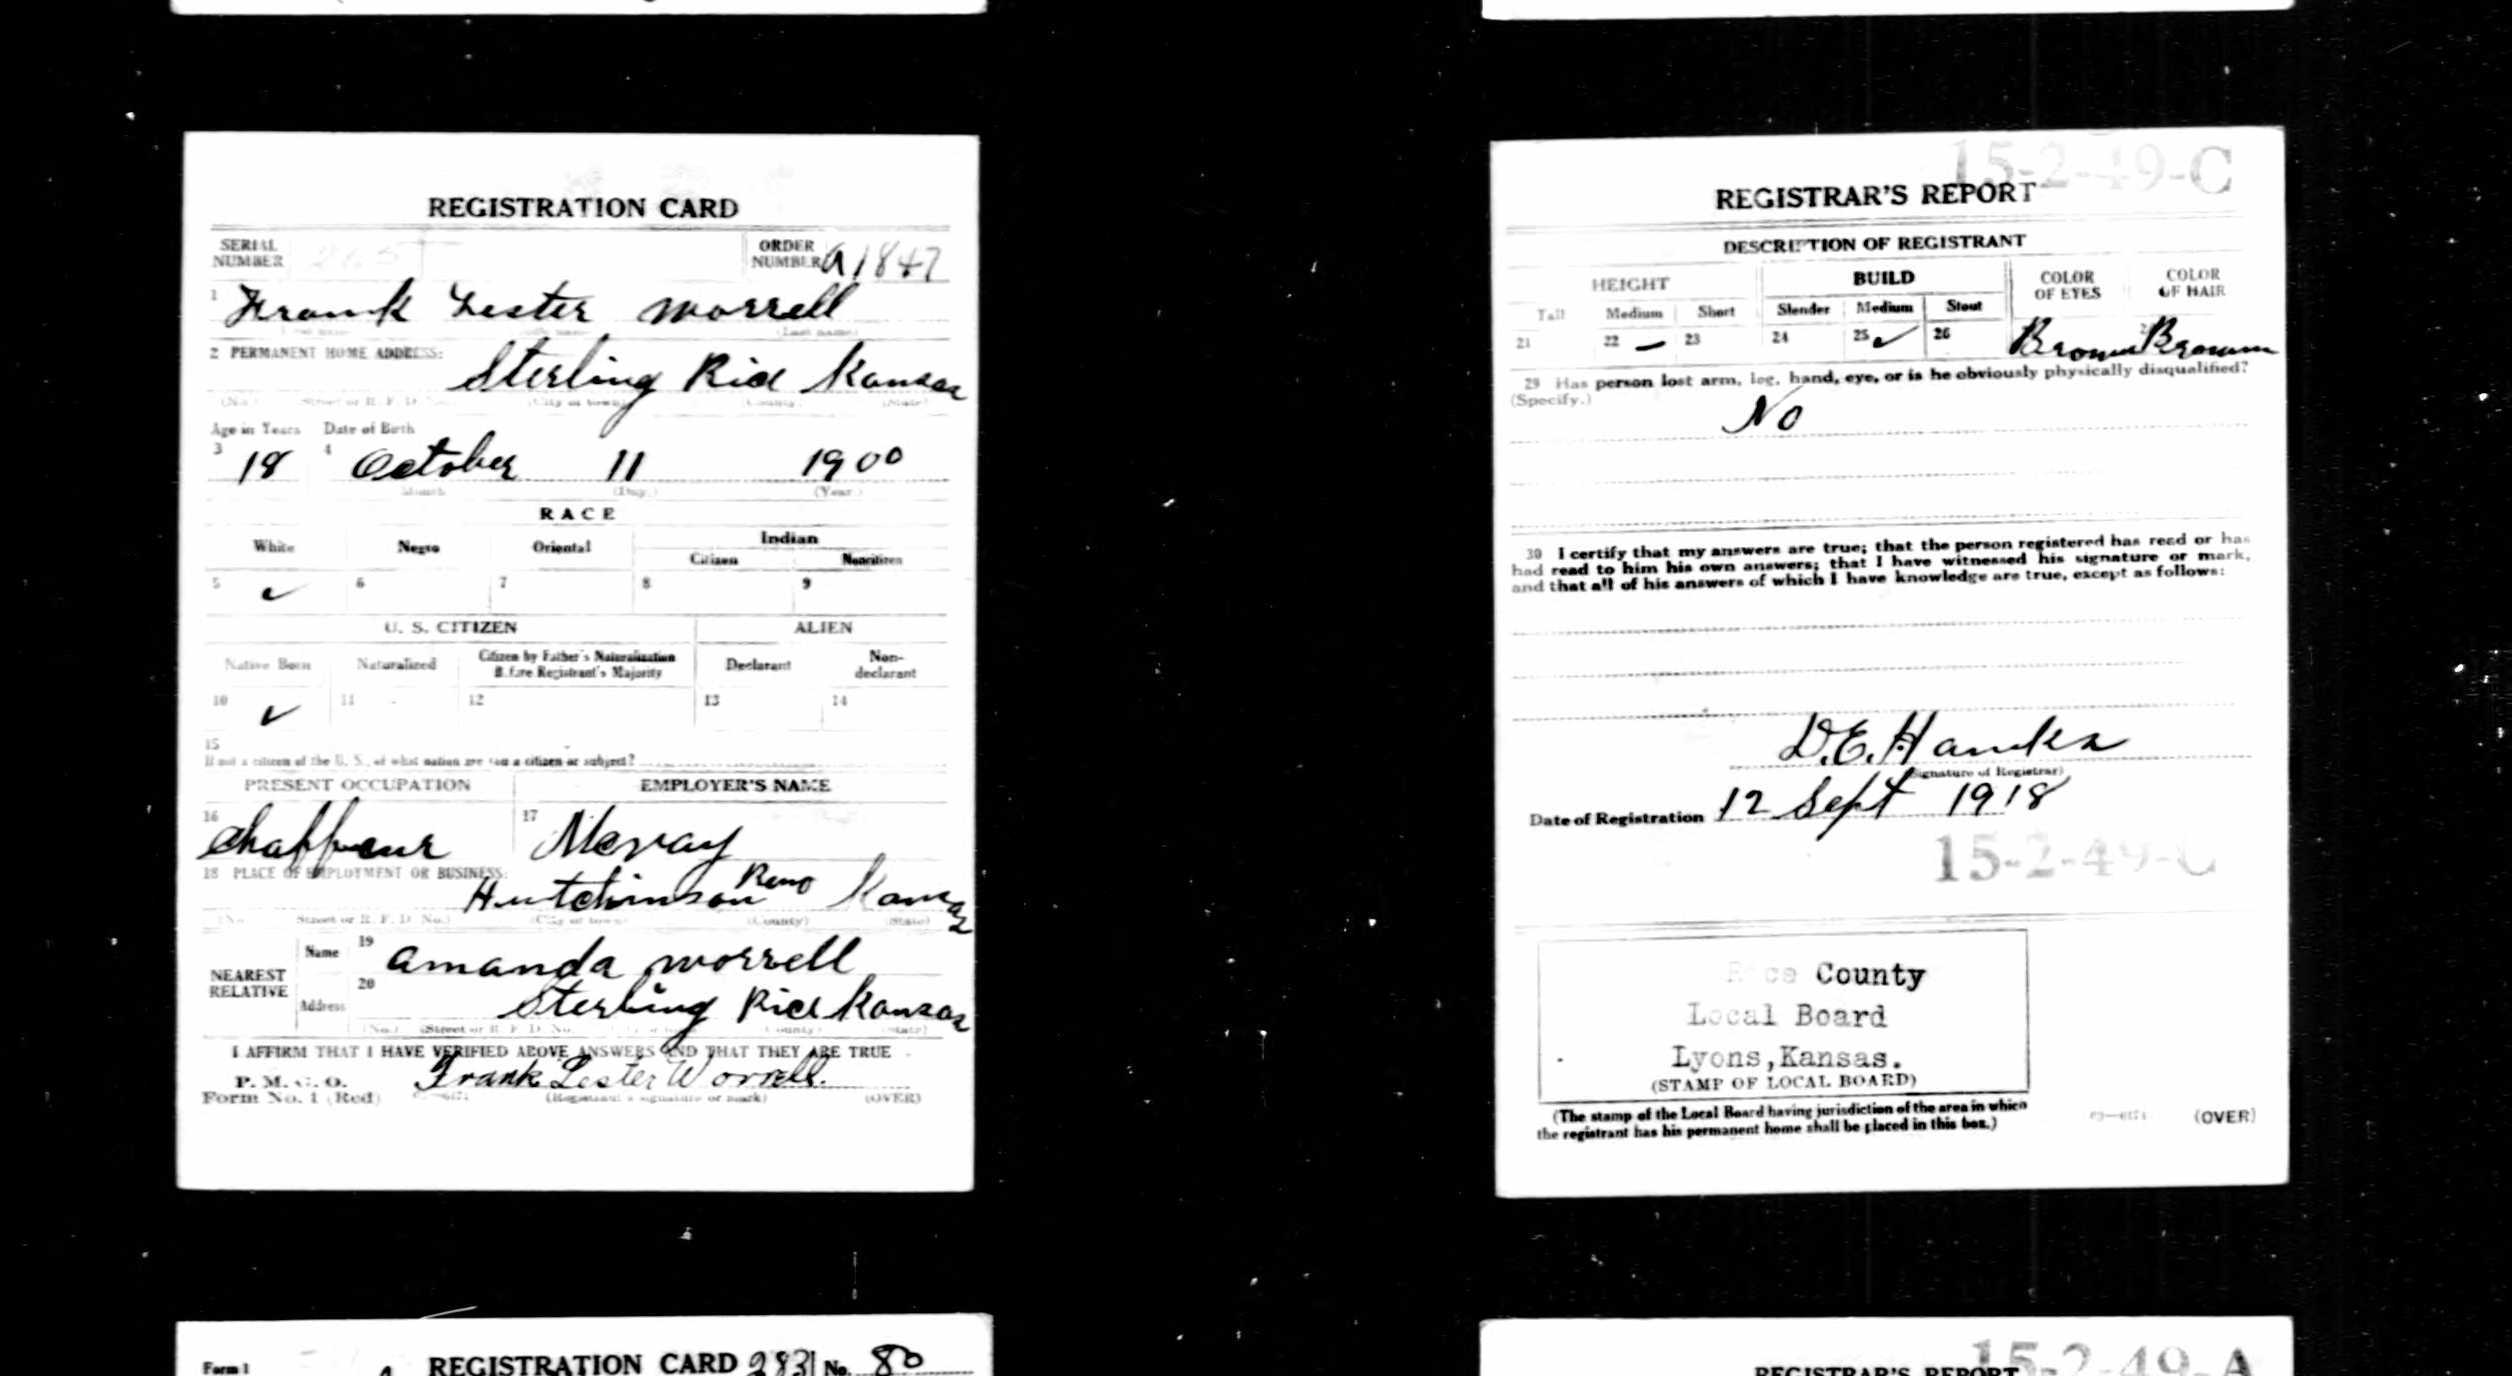 REGISTRATION CARD
SERIAL NUMBER
ORDER NUMBER A1847
1 Frank Lester Worrell
(Last name)
2 PERMANENT HOME ADDRESS:
Sterling Rice Kansas
(No.) (Street or R. F. D. No.) (City or town) (County) (State)
Age in Years Date of Birth
3 18 4 October 11 1900
Month (Day.) (Year.)
RACE
White Negro Oriental Indian
Citizen Noncitizen
5 ✓ 6 7 8 9
U. S. CITIZEN ALIEN
Native Born Naturalized Citizen by Father's Naturalization Before Registrant's Majority Declarant Non-declarant
10 ✓ 11 12 13 14
15
If not a citizen of the U. S., of what nation are you a citizen or subject?
PRESENT OCCUPATION EMPLOYER'S NAME
16 Chaffeur 17
18 PLACE OF EMPLOYMENT OR BUSINESS:
Hutchinson Reno Kansas
(No.) (Street or R. F. D. No.) (City or town) (County) (State)
NEAREST RELATIVE
Name 19 Amanda Worrell
Address 20 Sterling Rice Kansas
(No.) (Street or R. F. D. No.) (City or town) (County) (State)
I AFFIRM THAT I HAVE VERIFIED ABOVE ANSWERS AND THAT THEY ARE TRUE
P. M. G. O.
Form No. 1 (Red) Frank Lester Worrell.
(Registrant's signature or mark) (OVER)
15-2-49-C
REGISTRAR'S REPORT
DESCRIPTION OF REGISTRANT
HEIGHT BUILD COLOR OF EYES COLOR OF HAIR
Tall Medium Short Slender Medium Stout
21 22 – 23 24 25 ✓ 26 Brown Brown
29 Has person lost arm, leg, hand, eye, or is he obviously physically disqualified?
(Specify.) No
30 I certify that my answers are true; that the person registered has read or has
had read to him his own answers; that I have witnessed his signature or mark,
and that all of his answers of which I have knowledge are true, except as follows:
D.E.
(Signature of Registrar)
Date of Registration 12 Sept 1918
15-2-49-C
Rice County
Local Board
Lyons,Kansas.
(STAMP OF LOCAL BOARD)
(The stamp of the Local Board having jurisdiction of the area in which
the registrant has his permanent home shall be placed in this box.)
(OVER)
Form 1 REGISTRATION CARD 2831 No. 80
15-2-49-A
REGISTRAR'S REPORT